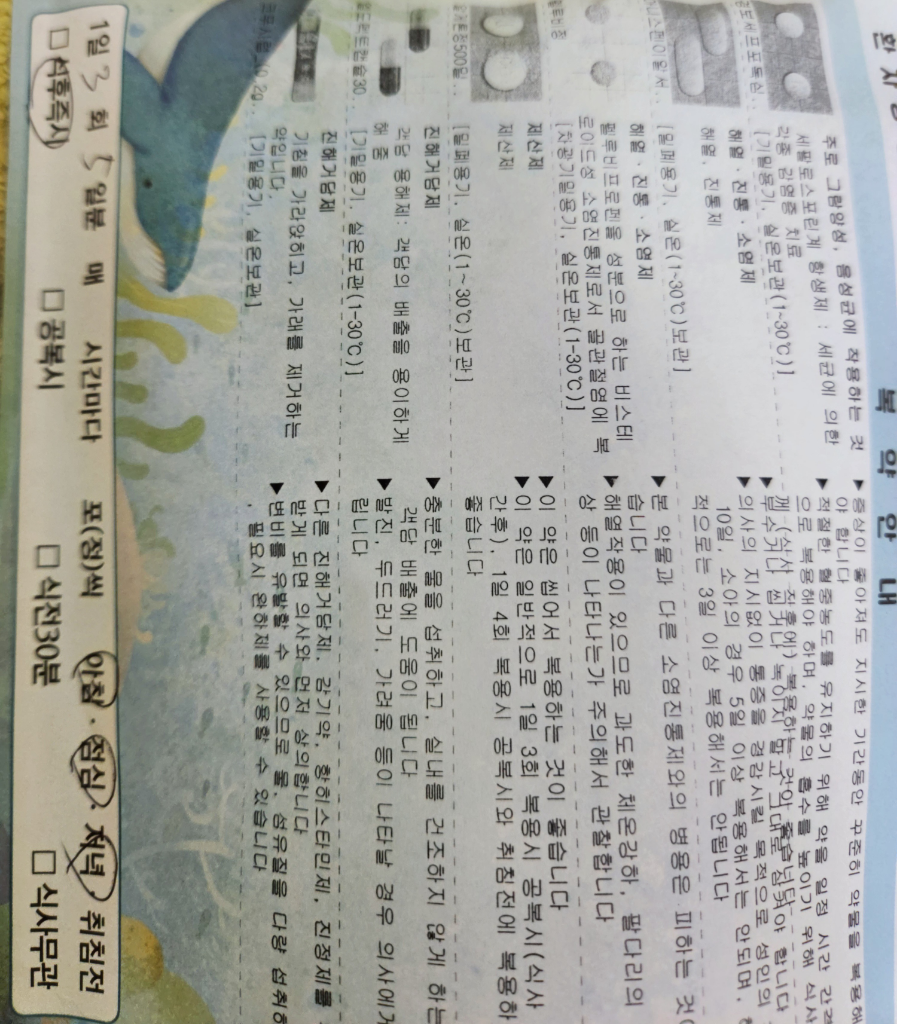 환 자
복 약 안 내
주로 그람양성, 음성균에 작용하는 것
세팔로스포린계 항생제 : 세균에 의한
각종 감염증 치료
[기밀용기, 실온보관(1~30℃)]
▶ 증상이 좋아져도 지시한 기간동안 꾸준히 약물을 복용해
야 합니다
▶ 적절한 혈중농도를 유지하기 위해 약을 일정 시간 간격
으로 복용해야 하며, 약물의 흡수를 높이기 위해 식사
직후에 복용하는 것이 좋습니다
해열·진통·소염제
해열, 진통제
[밀폐용기, 실온(1~30℃)보관]
▶ 부수거나 씹거나 녹이지 말고 그대로 삼켜야 합니다
▶ 의사의 지시없이 통증을 경감시킬 목적으로 성인의
10일, 소아의 경우 5일 이상 복용해서는 안되며,
적으로는 3일 이상 복용해서는 안됩니다
해열·진통·소염제
펠루비프로펜을 성분으로 하는 비스테
로이드성 소염진통제로서 골관절염에 복
[차광기밀용기, 실온보관(1-30℃)]
▶ 본 약물과 다른 소염진통제와의 병용은 피하는 것
습니다
▶ 해열작용이 있으므로 과도한 체온강하, 팔다리의
상 등이 나타나는가 주의해서 관찰합니다
500밀
제산제
제산제
[밀폐용기, 실온(1~30℃)보관]
▶ 이 약은 씹어서 복용하는 것이 좋습니다
▶ 이 약은 일반적으로 1일 3회 복용시 공복시(식사
간후), 1일 4회 복용시 공복시와 취침전에 복용하
좋습니다
진해거담제
객담 용해제: 객담의 배출을 용이하게
해 줌
[기밀용기, 실온보관(1-30℃)]
▶ 충분한 물을 섭취하고, 실내를 건조하지 않게 하는
객담 배출에 도움이 됩니다
▶ 발진, 두드러기, 가려움 등이 나타날 경우 의사에게
립니다
진해거담제
기침을 가라앉히고, 가래를 제거하는
약입니다.
[기밀용기, 실온보관]
▶ 다른 진해거담제, 감기약, 항히스타민제, 진정제를
받게 되면 의사와 먼저 상의합니다
▶ 변비를 유발할 수 있으므로 물, 섬유질을 다량 섭취하
, 필요시 완하제를 사용할 수 있습니다
1일 3 회 5 일분 매 시간마다 포(정)씩 아침·점심·저녁·취침전
□ 식후즉시 □ 공복시 □ 식전30분 □ 식사무관